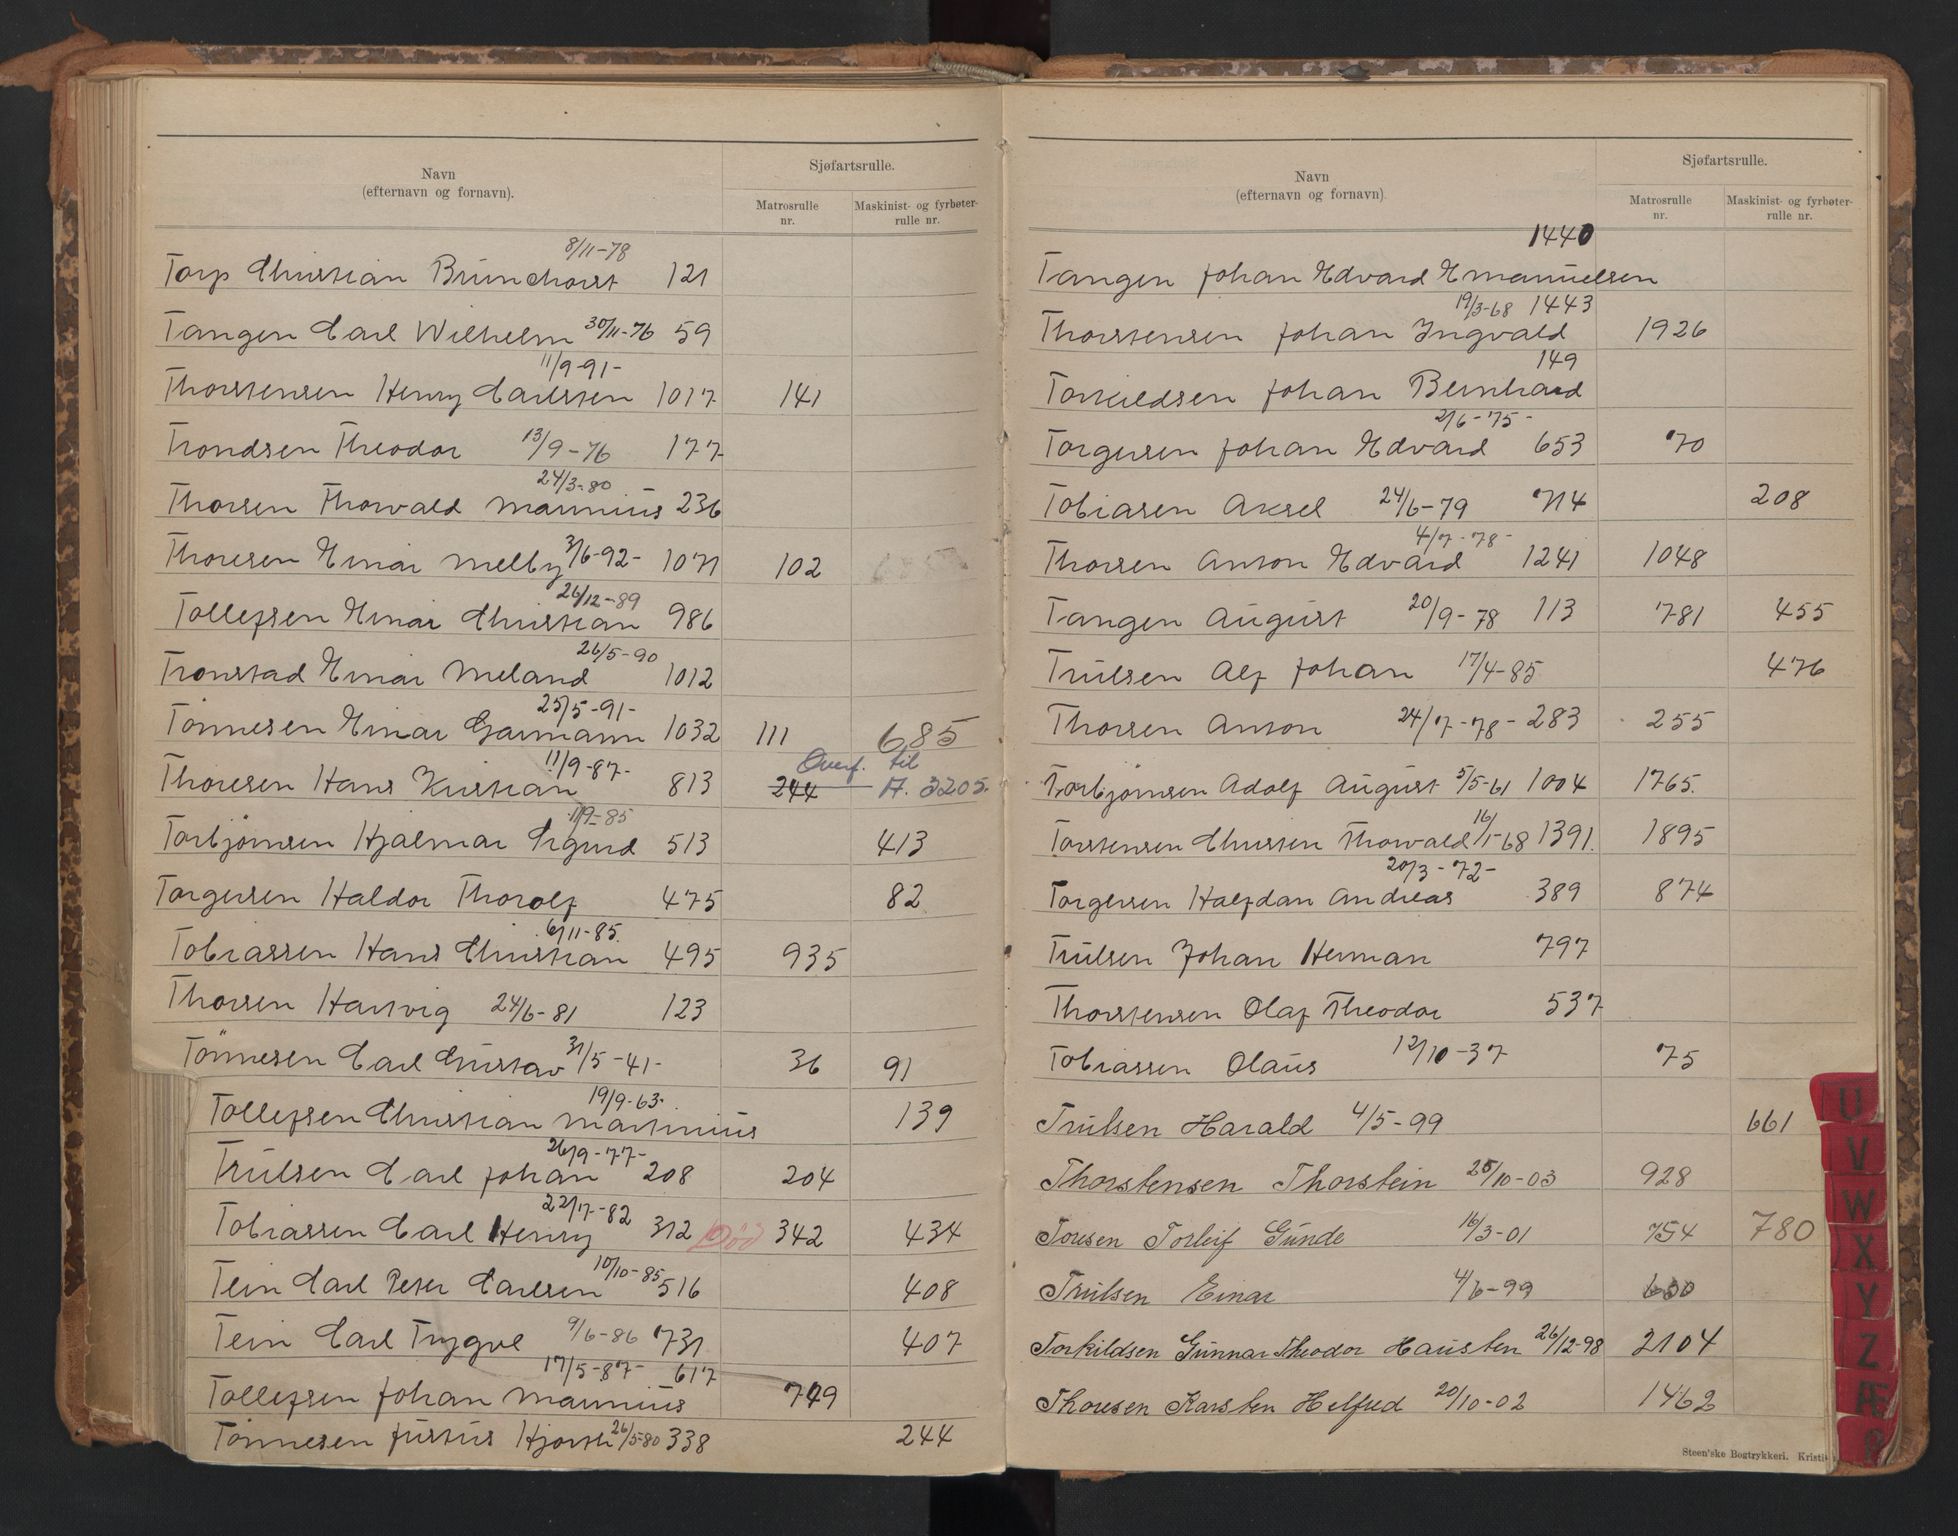 Navn
(efternavn og fornavn).
Sjøfartsrulle.
Matrosrulle
nr.
Maskinist- og fyrbøter-
rulle nr.
8/11-78
Torp Christian Brunchorst 121
Tangen Carl Wilhelm 30/11-76 59
11/9-91-
Thorstensen Henry Carlsten 1017 141
Trondsen Theodor 13/9-76 177
24/3-80
Thorsen Thorvald Marinius 236
Thoresen Einar Melby 3/6-92- 1071 102
26/12-89
Tollefsen Einar Christian 986
26/5-90
Tronstad Einar Meland 1012
25/5-91-
Tønnesen Einar Garmann 1032 111 685
Overf. til
11/9-87-
Thoresen Hans Kristian 813 244 A. 3205.
11/9-85
Torbjørnsen Hjalmar Sigurd 513 413
Torgersen Haldor Thorolf 475 82
6/11-85.
Tobiassen Hans Christian 495 935
Thorsen Hartvig 24/6-81 123
Tønnesen Carl Gustav 31/5-41- 36 91
19/9-63.
Tollefsen Christian Martinius 139
26/9-77-
Trulsen Carl Johan 208 204
22/7-82
Tobiassen Carl Henry 312 Død 342 434
10/10-85
Tein Carl Peter Carlsen 516 408
Tein Carl Trygve 9/6-86 731 407
17/5-87- 617
Tollefsen Johan Marinius 749
Tønnesen Justus Hjorth 26/5-80 338 244
Navn
(efternavn og fornavn).
Sjøfartsrulle.
Matrosrulle
nr.
Maskinist- og fyrbøter-
rulle nr.
1440
Tangen Johan Edvard Emanuelsen
19/3-68 1443
Thorstensen Johan Ingvald 1926
149
Torkildsen Johan Bernhard
2/6-75-
Torgersen Johan Edvard 653 70
Tobiasen Aksel 24/6-79 714 208
4/7-78-
Thorsen Anton Edvard 1241 1048
Tangen August 20/9-78 113 781 455
Trulsen Alf Johan 17/4-85 476
Thorsen Anton 24/7-78- 283 255
Torbjørnsen Adolf August 5/5-61 1004 1765.
Torstensen Christen Thorvald 16/1-68 1391. 1895
20/3-72-
Torgersen Halfdan Andreas 389 874
Trulsen Johan Herman 797
Thorstensen Olaf Theodor 537
Tobiassen Olaus 12/10-37 75
Trulsen Harald 4/5-99 661
Thorstensen Thorstein 25/10-03 928
Toresen Torleif Gunde 16/3-01 754 780
Trulsen Einar 4/6-99 600
Torkildsen Gunnar Theodor Hausten 26/12-98 2104
Thoresen Karsten Helfred 20/10-02 1462
Steen'ske Bogtrykkeri. Kristi
U
V
W
X
Y
Z
Æ